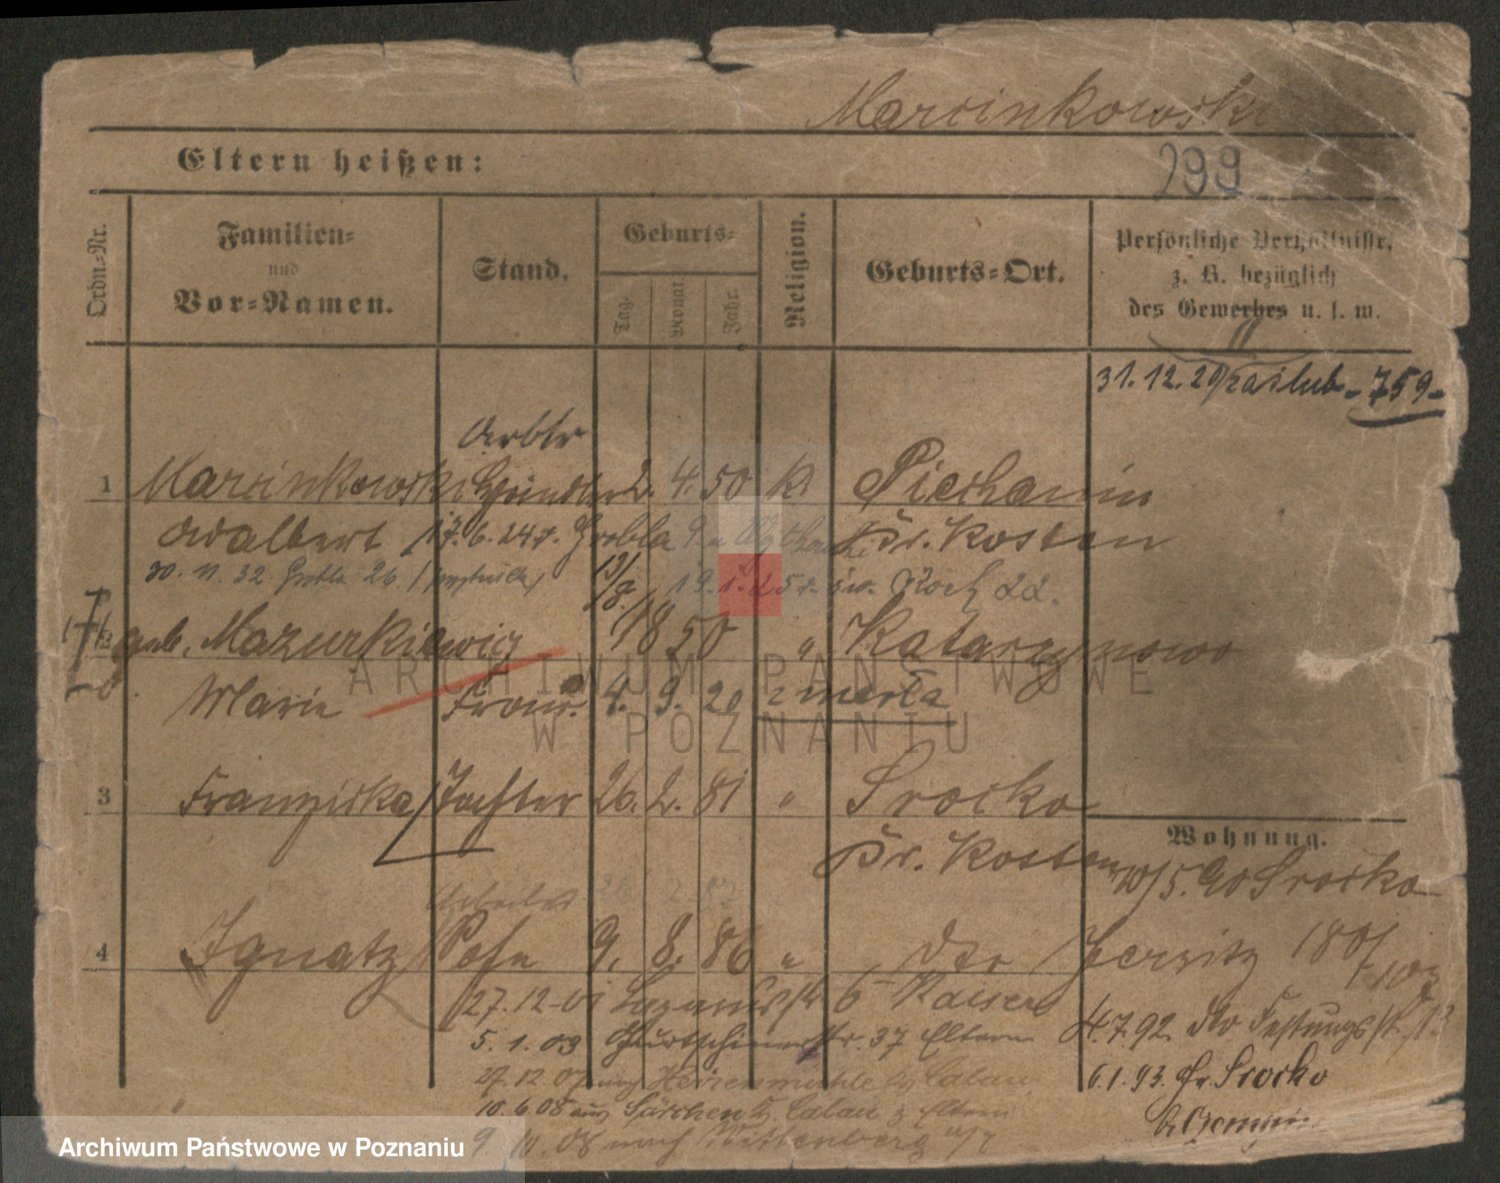 Marcinkowski
Eltern heißen:
299
Ordn.=Nr.
Familien=
und
Vor=Namen.
Stand.
Geburts=
Tag.
Monat.
Jahr.
Religion.
Geburts=Ort.
Persönliche Verhältnisse,
z. B. bezüglich
des Gewerbes u. s. w.
31.12.20 zaślub. - 759 -
Arbtr
1 Marcinkowski 2. 4. 50 K. Piechanin
Adalbert 17.6.24 Grobla 9. Kr. Kosten
30. 11. 32. Grobla 26
19. 1. 25 św. Roch 22.
geb. Mazurkiewicz 18 50 " Katarzynowo
Marie Frau. 4. 9. 20 zmarła
3 Franziska Tochter 26. 2. 81 " Srocko
Kr. Kosten
Wohnung.
v/5. 90 Srocko
Arbeiter
4 Ignatz Sohn 9. 8. 86 " dto Jersitz 180
27.12-01 Lazarusstr 6 Kaiser
4.7.92 dto Festungsstr.
5. 1. 03 37 Eltern
6.1.93. Gr. Srocko
27.12.07 nach Herrenmühle Calau
10.6.08 aus Särchen Kr. Calau z Eltern
9. 10. 08 nach Wittenberg
ARCHIWUM PAŃSTWOWE
W POZNANIU
Archiwum Państwowe w Poznaniu